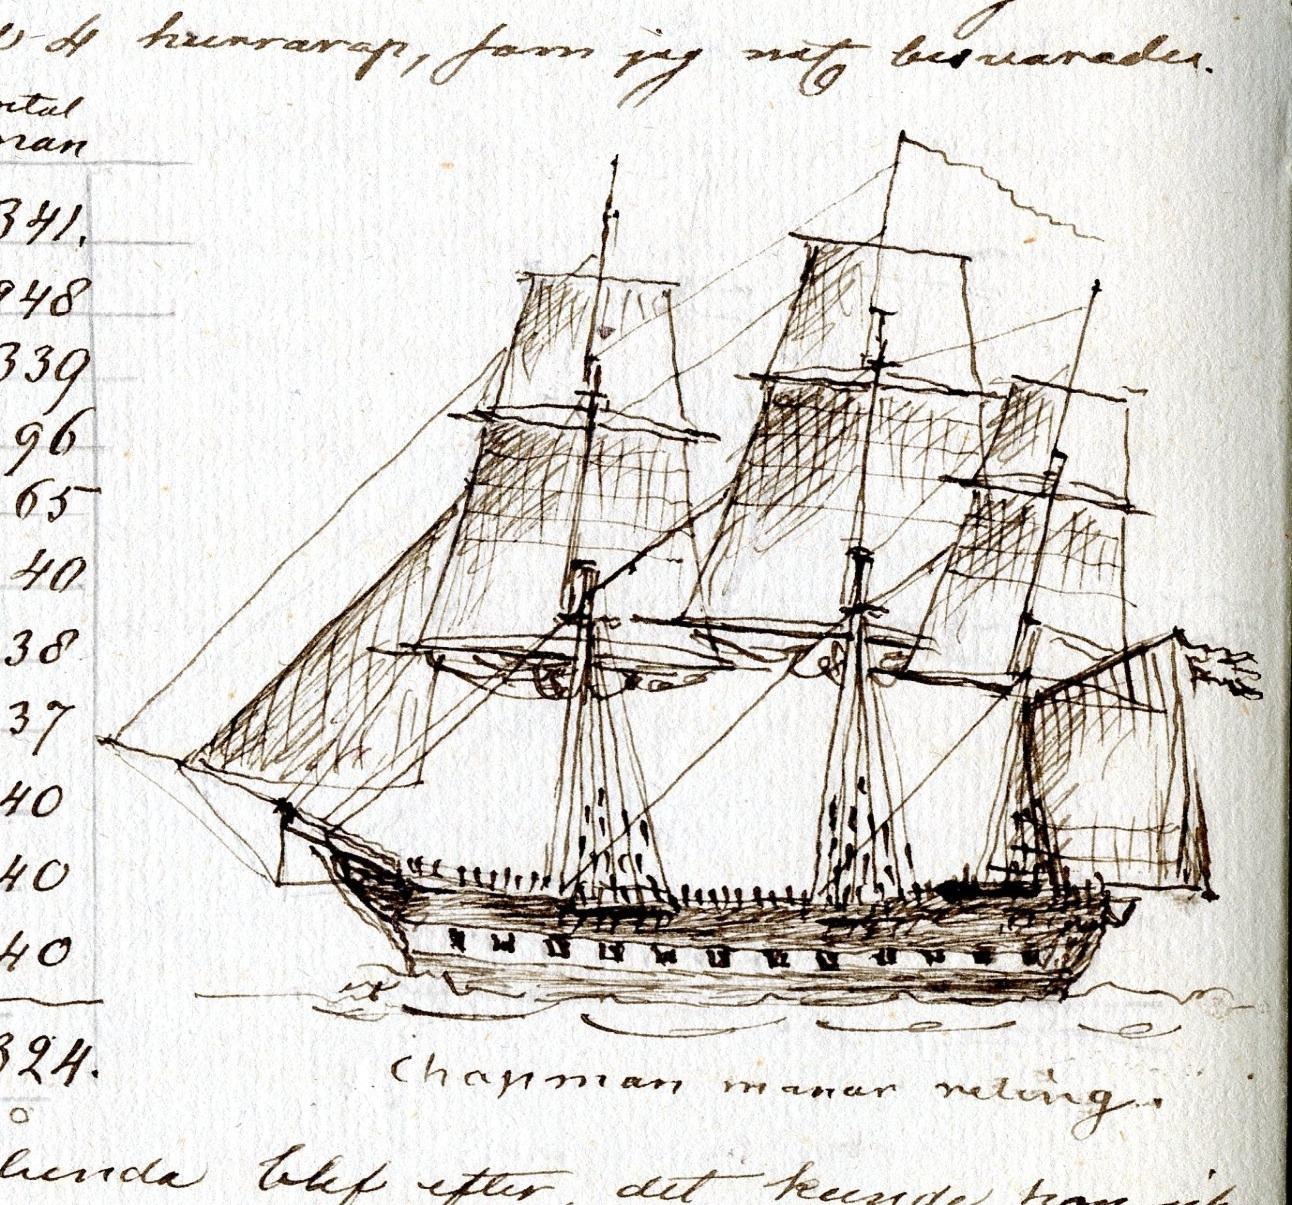 4 hurrarop, som jag nat besvarades.
ntal
man
341.
948
339
96
65
40
38
37
40
40
40
324.
Chapman manar reling.
blef efter, det kunde han